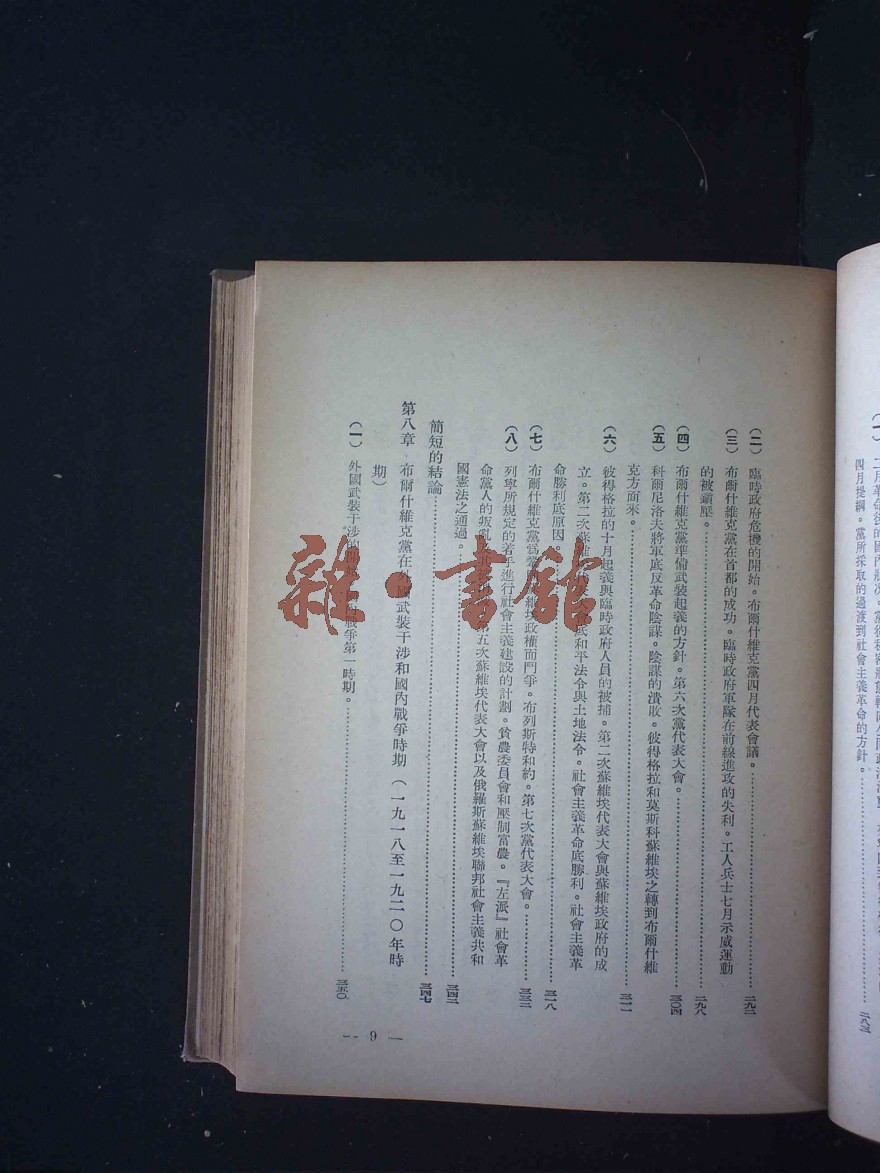 四月提綱。黨所採取的過渡到社會主義革命的方針。……二八三
(二) 臨時政府危機的開始。布爾什維克黨四月代表會議。……二九二
(三) 布爾什維克黨在首都的成功。臨時政府軍隊在前線進攻的失利。工人兵士七月示威運動
的被鎭壓。……二九八
(四) 布爾什維克黨準備武裝起義的方針。第六次黨代表大會。……三〇四
(五) 科爾尼洛夫將軍底反革命陰謀。陰謀的潰敗。彼得格拉和莫斯科蘇維埃之轉到布爾什維
克方面來。……三一一
(六) 彼得格拉的十月起義與臨時政府人員的被捕。第二次蘇維埃代表大會與蘇維埃政府的成
立。第二次蘇維埃代表大會底和平法令與土地法令。社會主義革命底勝利。社會主義革
命勝利底原因……三一八
(七) 布爾什維克黨爲鞏固蘇維埃政權而鬥爭。布列斯特和約。第七次黨代表大會。……三三二
(八) 列寧所規定的着手進行社會主義建設的計劃。貧農委員會和壓制富農。『左派』社會革
命黨人的叛亂 第五次蘇維埃代表大會以及俄羅斯蘇維埃聯邦社會主義共和
國憲法之通過。……三四二
簡短的結論……三四七
第八章 布爾什維克黨在外國武裝干涉和國內戰爭時期(一九一八至一九二〇年時
期)
(一) 外國武裝干涉的 戰爭第一時期。……三五〇
— 9 —
雜·書館